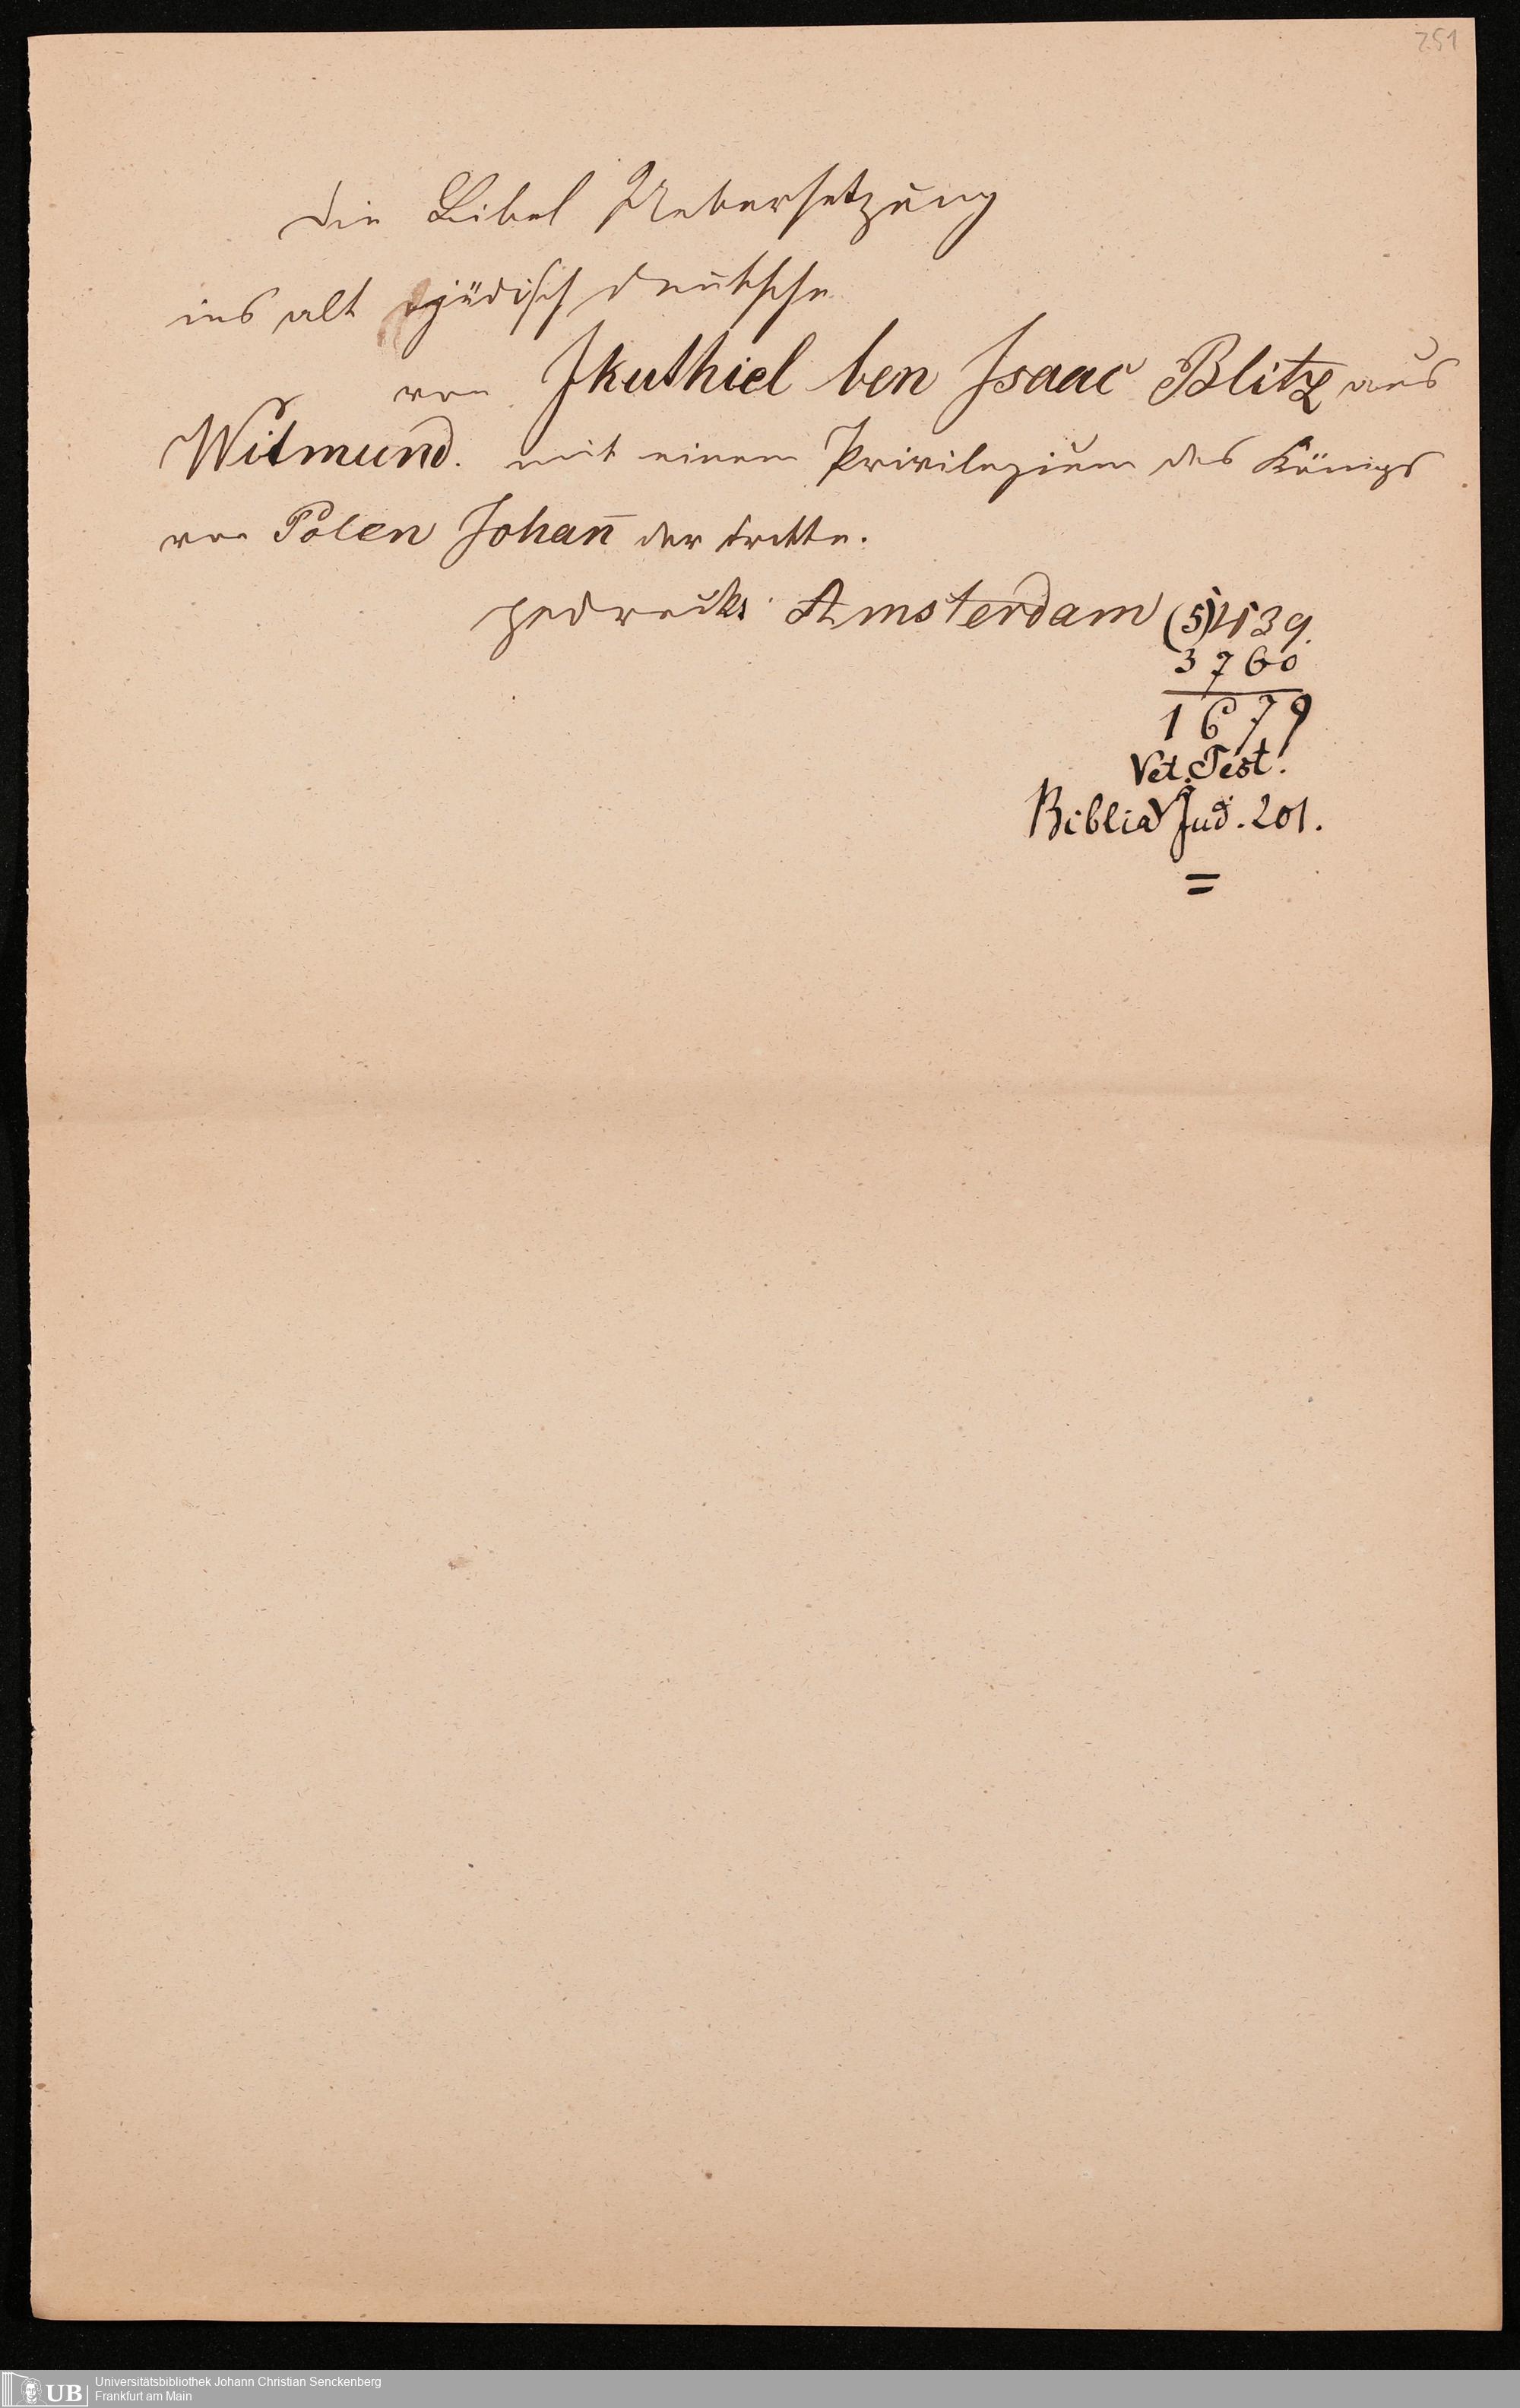 251
Die Bibel Uebersetzung
ins alt jüdisch deutsche
von Jkuthiel ben Isaac Blitz aus
Witmund. mit einem Privilegium des Königs
von Polen Johan̄ der dritte.
gedruckt Amsterdam (5)439.
3760
1679
Vet. Test.
Biblia Jud. 201.
=
UB Universitätsbibliothek Johann Christian Senckenberg
Frankfurt am Main